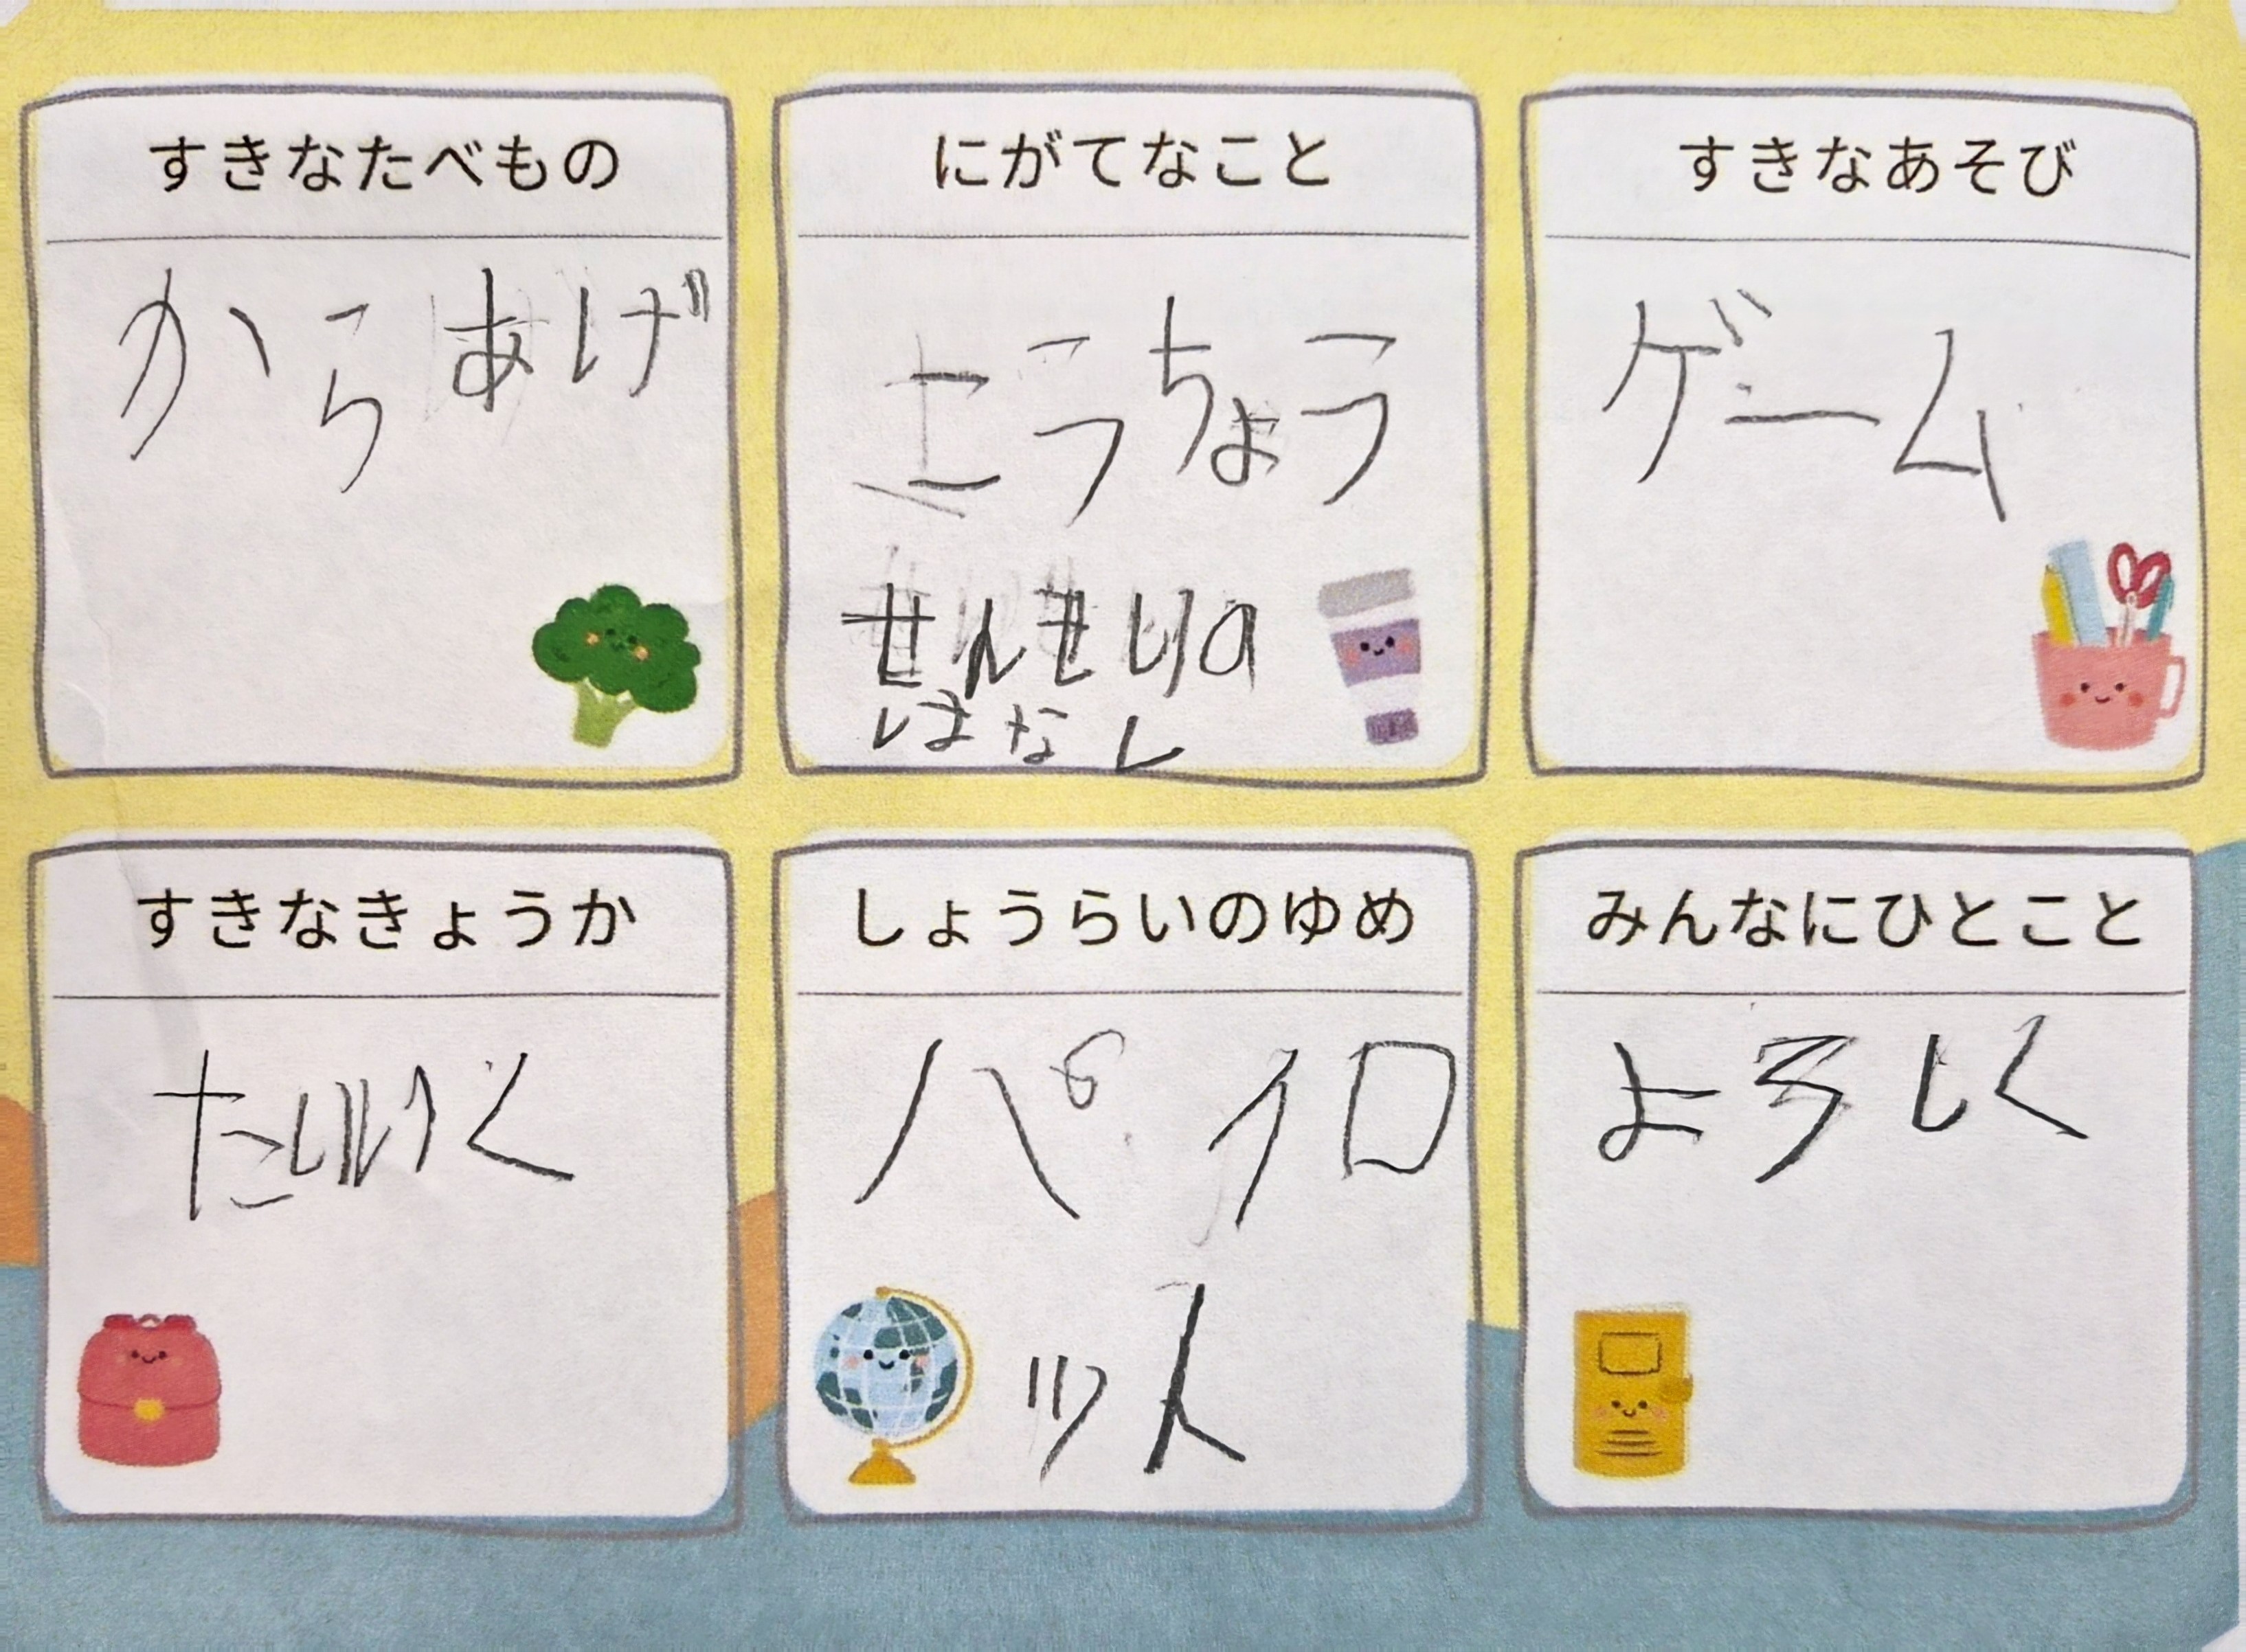 すきなたべもの
からあげ
にがてなこと
こうちょう
せんせいの
はなし
すきなあそび
ゲーム
すきなきょうか
たいいく
しょうらいのゆめ
パイロ
ット
みんなにひとこと
よろしく